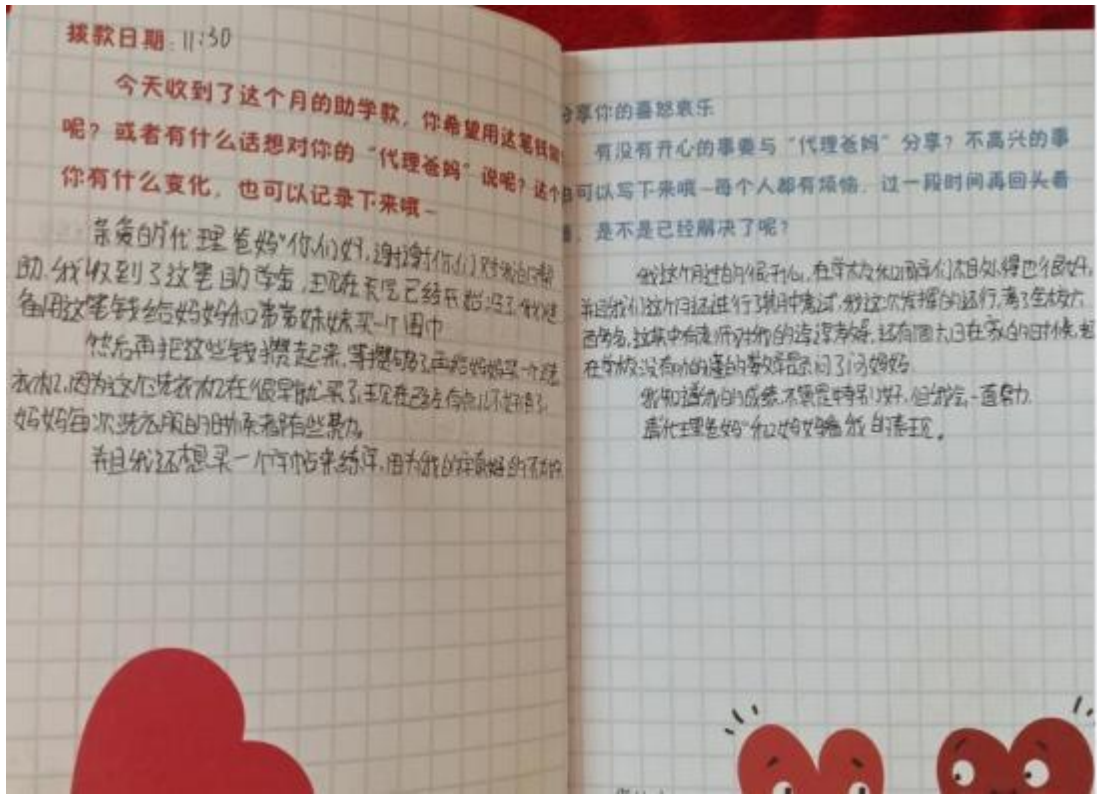 拨款日期:11:30
今天收到了这个月的助学款,你希望用这笔钱
呢?或者有什么话想对你的“代理爸妈”说呢?这个
你有什么变化,也可以记录下来哦~
亲爱的“代理爸妈”你们好,谢谢你们对我的帮
助,我收到了这笔助学金,现在天气已经开始冷了,我准
备用这笔钱给妈妈和弟弟妹妹买一个围巾
然后再把这些钱攒起来,等攒够了再给妈妈买一个洗
衣机,因为这个洗衣机在很早就买了,现在已经有点儿不好使了,
妈妈每次洗衣服的时候都有些费力。
并且我还想买一个字帖来练字,因为我的字真的不太好
分享你的喜怒哀乐
有没有开心的事要与“代理爸妈”分享?不高兴的事
可以写下来哦~每个人都有烦恼,过一段时间再回头看
,是不是已经解决了呢?
我这个月过的很开心,在学校和同学们相处得也很好,
并且我们这个月还进行了期中考试,我这次发挥的还行,考了全校六
百多名,这其中有老师对我的谆谆教导,还有周六日在家的时候,把
在学校没有的数学题问了问妈妈
我知道我的成绩不算是特别好,但我会一直努力
请“代理爸妈”和妈妈看我的表现。